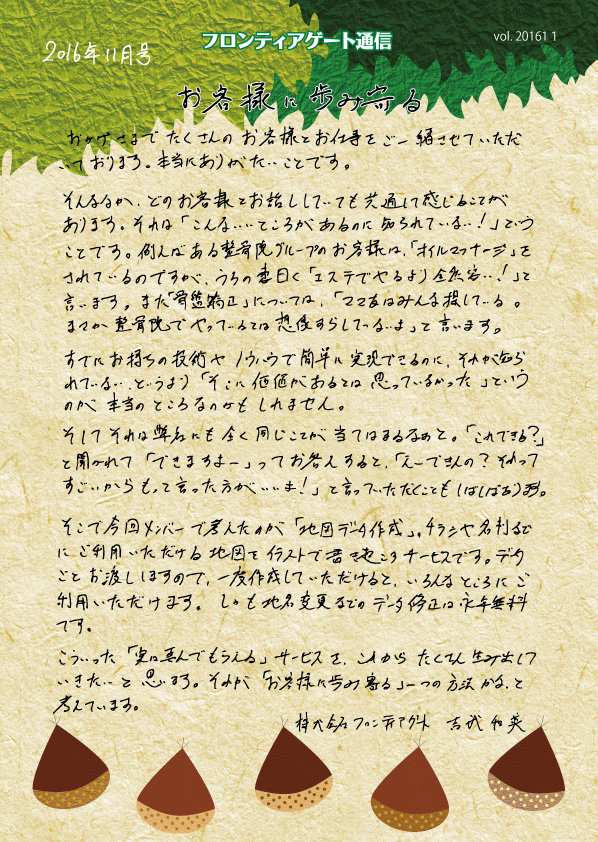 2016年11月号
フロンティアゲート通信
vol. 201611
お客様に歩み寄る
おかげさまでたくさんのお客様とお仕事をご一緒させていただ
いております。本当にありがたいことです。
そんななか、どのお客様とお話ししていても共通して感じることが
あります。それは「こんないいところがあるのに知られていない！」という
ことです。例えばある整骨院グループのお客様は、「オイルマッサージ」を
されているのですが、うちの妻曰く「エステでやるより全然安い！」と
言います。また「骨盤矯正」については、「ママ友はみんな探している。
まさか整骨院でやっているとは想像すらしていないよ」と言います。
すでにお持ちの技術やノウハウで簡単に実現できるのに、それが知ら
れていない、というより「そこに価値があるとは思っていなかった」という
のが本当のところなのかもしれません。
そしてそれは弊社にも全く同じことが当てはまるなぁと。「これできる？」
と聞かれて「できますよー」ってお答えすると、「えーできんの？それって
すごいからもっと言った方がいいよ！」と言っていただくこともしばしばあり
そこで今回メンバーで考えたのが「地図データ作成」。チラシや名刺など
にご利用いただける地図をイラストで書き起こすサービスです。データ
ごとお渡ししますので、一度作成していただけると、いろんなところにご
利用いただけます。しかも地名変更などのデータ修正は永年無料
です。
こういった「実は喜んでもらえる」サービスを、これからたくさん生み出して
いきたいと思います。それが「お客様に歩み寄る」一つの方法かな、と
考えています。
株式会社フロンティアゲート 吉武